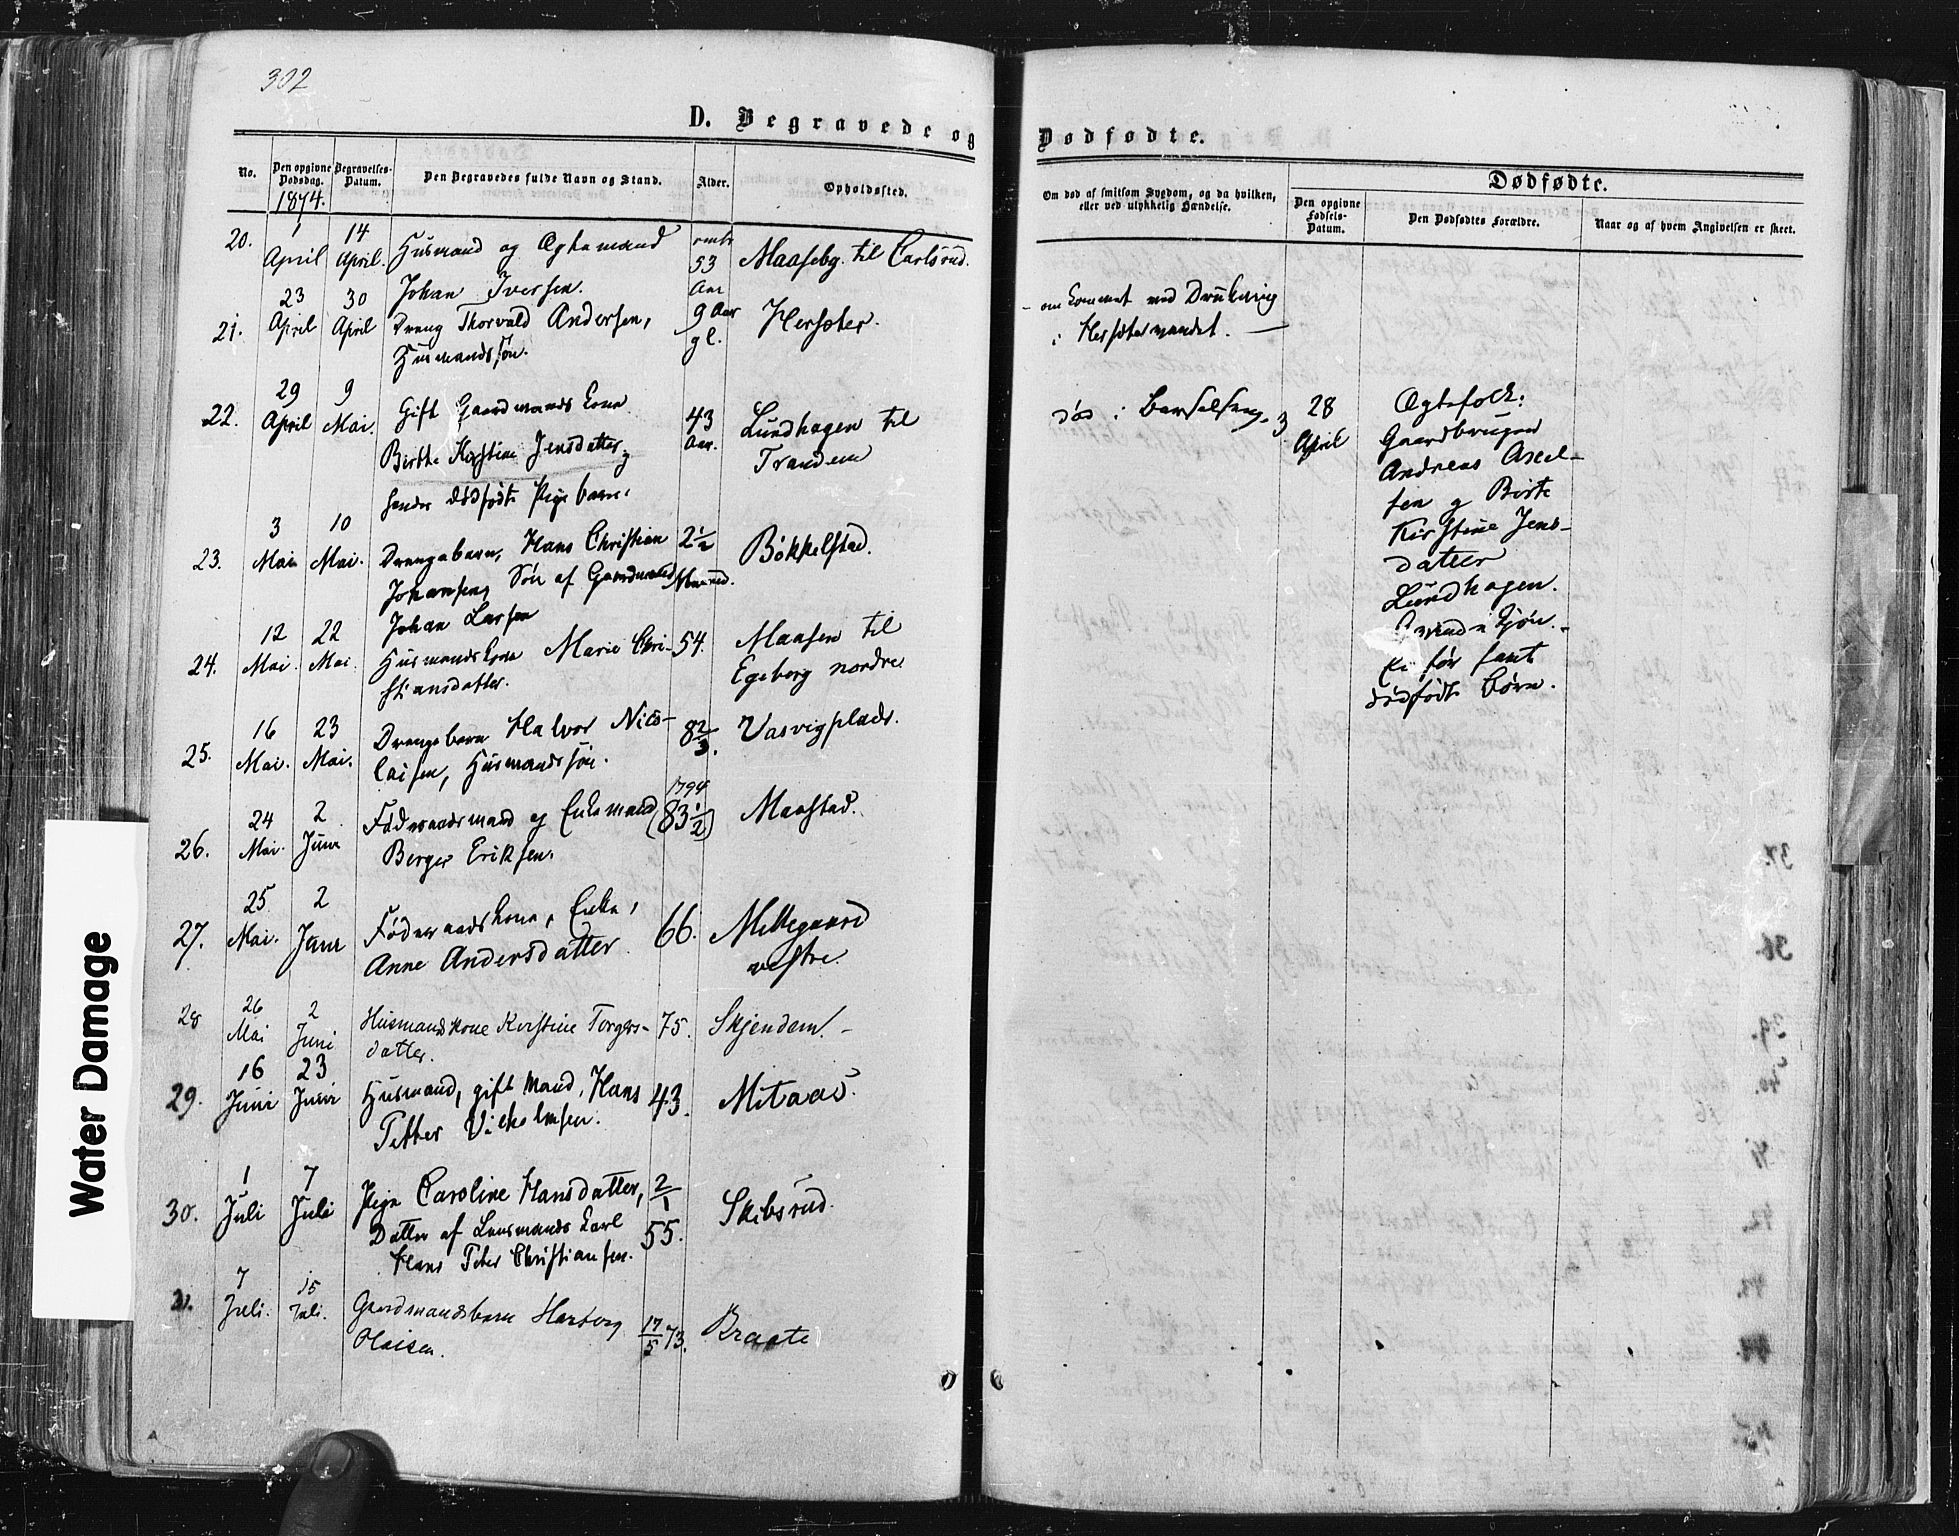 302
D. Begravede og
Dødfødte.
No.
Den opgivne Dødsdag.
1874.
Begravelses-Datum.
Den Begravedes fulde Navn og Stand.
Alder.
Opholdssted.
Om død af smitsom Sygdom, og da hvilken,
eller ved ulykkelig Hændelse.
Dødfødte.
Den opgivne Fødsels-Datum.
Den Dødfødtes Forældre.
Naar og af hvem Angivelsen er skeet.
20.
1 April
14 April.
Husmand og Ægtemand
Johan Iversen.
omtr 53 Aar
Maasebg. til Carlsrud.
21.
23 April
30 April
Dreng Thorvald Andersen,
Husmandssøn.
9 Aar gl.
Hersæter.
omkommet ved Drukning
i Hersætervandet.
22.
29 April
9 Mai.
Gift Gaardmands Kone
Birthe Kirstine Jensdatter,
hendes dødfødte Pigebarn.
43 Aar.
Lundhagen til
Trandem
død i Barselseng.
28 April
Ægtefolk:
Gaardbruger
Andreas Axel-
sen og Birte
Kirstine Jens-
datter
Lundhagen.
før havt
dødfødte Børn.
23.
3 Mai
10 Mai.
Drengebarn, Hans Christian
Johansen, Søn af Gaardmand
Johan Larsen
2 1/2 Maaned.
Bøkkelstad.
24.
12 Mai.
22 Mai
Husmandskone Marie Chri-
stiansdatter.
54.
Maasen til
Egeberg nordre
25.
16 Mai.
23 Mai.
Drengebarn Halvor Nico-
laisen, Husmandssøn.
8 2/3.
Vasvigplads.
26.
24 Mai.
2 Juni
Føderaadsmand og Enkemand
Berger Eriksen.
1794
(83 1/2)
Maastad.
27.
25 Mai.
2 Juni
Føderaadskone, Enke,
Anne Andersdatter
66.
Mellegaard
vestre.
28
26 Mai
2 Juni
Husmandskone Kirstine Torgers-
datter.
75.
Skjendem.
29.
16 Juni
23 Juni
Husmand, gift Mand, Hans
Petter Vilhelmsen.
43.
Mitaas.
30.
1 Juli
7 Juli
Pige Caroline Hansdatter,
Datter af Lensmands Karl
Hans Peter Christiansen.
2/1 55.
Skibsrud.
31.
7 Juli.
15 Juli.
Gaardmandsbarn Harborg
Olaisen.
17/5 73.
Braate
Water Damage